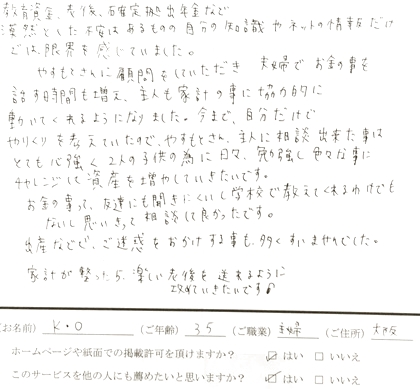 教育資金、老後、確定拠出年金など
漠然とした不安はあるものの自分の知識やネットの情報だけ
では、限界を感じていました。
やすもとさんに顧問をしていただき 夫婦でお金の事を
話す時間も増え、主人も家計の事に協力的に
動いてくれるようになりました。今まで、自分だけで
やりくりを考えていたので、やすもとさん、主人に相談出来た事は
とても心強く 2人の子供の為に日々、勉強し色々な事に
チャレンジして資産を増やしていきたいです。
お金の事って、友達にも聞きにくいし学校で教えてくれるわけでも
ないし思いきって相談して良かったです。
出産などで、ご迷惑をおかけする事も、多くすいませんでした。
家計が整ったら、楽しい老後を送れるように
攻めていきたいです♪
(お名前) K・O (ご年齢) 35 (ご職業) 主婦 (ご住所) 大阪
ホームページや紙面での掲載許可を頂けますか? ☑ はい □ いいえ
このサービスを他の人にも薦めたいと思いますか? ☑ はい □ いいえ